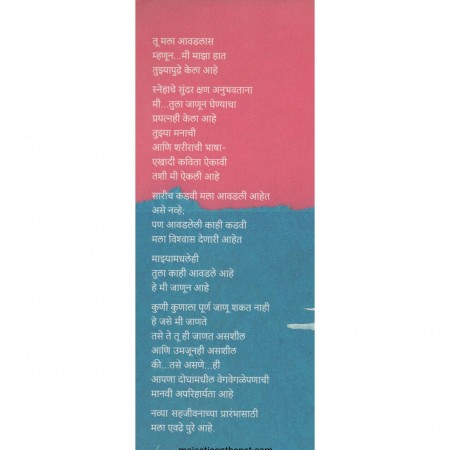 तू मला आवडलास
म्हणून...मी माझा हात
तुझ्यापुढे केला आहे
स्नेहाचे सुंदर क्षण अनुभवताना
मी...तुला जाणून घेण्याचा
प्रयत्नही केला आहे
तुझ्या मनाची
आणि शरीराची भाषा-
एखादी कविता ऐकावी
तशी मी ऐकली आहे
सारीच कडवी मला आवडली आहेत
असे नव्हे;
पण आवडलेली काही कडवी
मला विश्वास देणारी आहेत
माझ्यामधलेही
तुला काही आवडले आहे
हे मी जाणून आहे
कुणी कुणाला पूर्ण जाणू शकत नाही
हे जसे मी जाणते
तसे ते तू ही जाणत असशील
आणि उमजूनही असशील
की...तसे असणे...ही
आपणा दोघामधील वेगवेगळेपणाची
मानवी अपरिहार्यता आहे
नव्या सहजीवनाच्या प्रारंभासाठी
मला एवढे पुरे आहे.